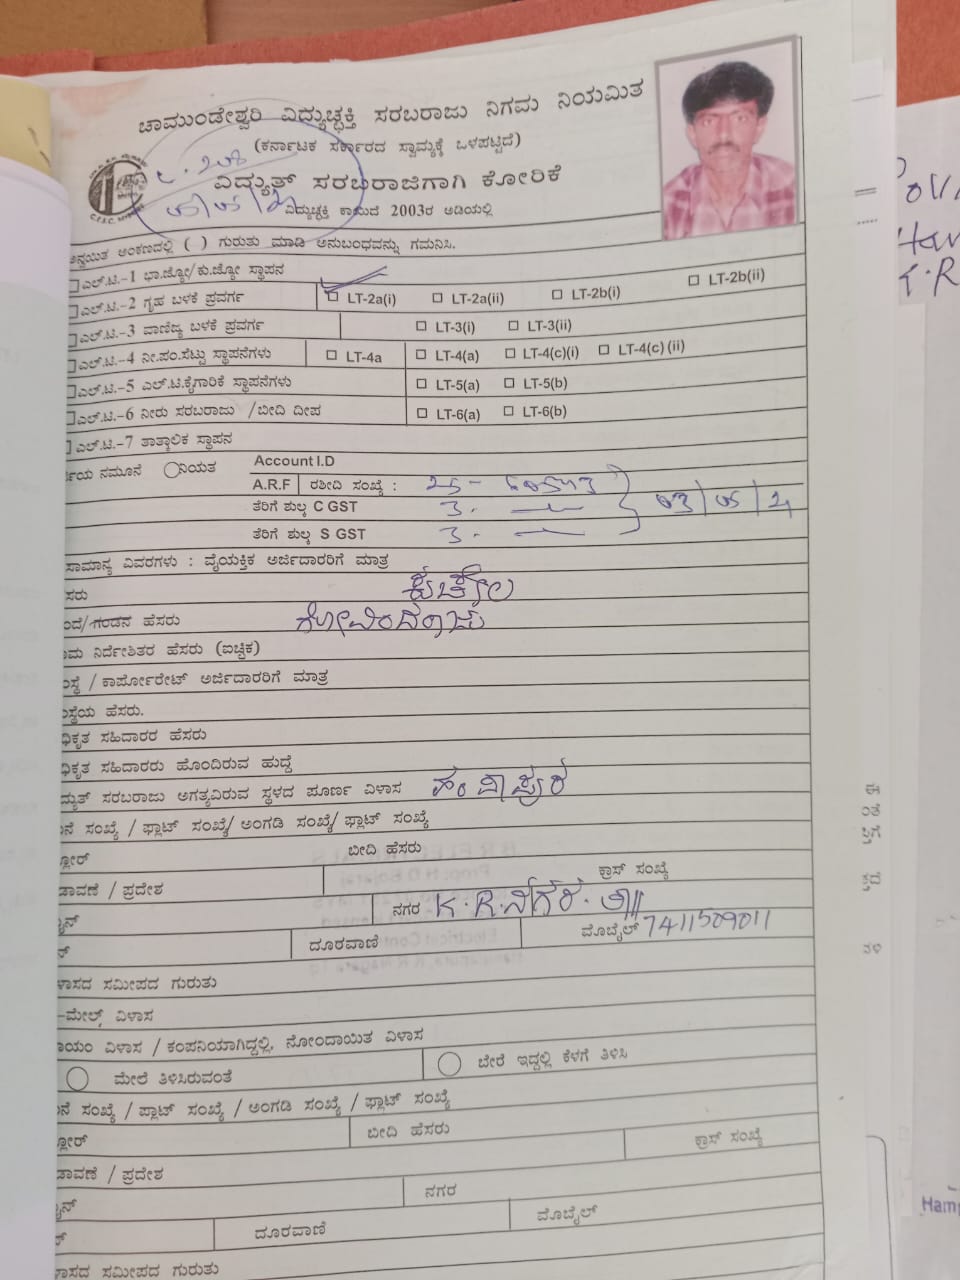 ಚಾಮುಂಡೇಶ್ವರಿ ವಿದ್ಯುಚ್ಛಕ್ತಿ ಸರಬರಾಜು ನಿಗಮ ನಿಯಮಿತ
(ಕರ್ನಾಟಕ ಸರ್ಕಾರದ ಸ್ವಾಮ್ಯಕ್ಕೆ ಒಳಪಟ್ಟಿದೆ)
ವಿದ್ಯುತ್ ಸರಬರಾಜಿಗಾಗಿ ಕೋರಿಕೆ
ವಿದ್ಯುಚ್ಛಕ್ತಿ ಕಾಯಿದೆ 2003ರ ಅಡಿಯಲ್ಲಿ
ಅಂಕಣದಲ್ಲಿ ( ) ಗುರುತು ಮಾಡಿ ಅನುಬಂಧವನ್ನು ಗಮನಿಸಿ.
ಎಲ್.ಟಿ.-1 ಭಾ.ಜ್ಯೋ/ಕು.ಜ್ಯೋ ಸ್ಥಾಪನ
ಎಲ್.ಟಿ.-2 ಗೃಹ ಬಳಕೆ ಪ್ರವರ್ಗ LT-2a(i) LT-2a(ii) LT-2b(i) LT-2b(ii)
ಎಲ್.ಟಿ.-3 ವಾಣಿಜ್ಯ ಬಳಕೆ ಪ್ರವರ್ಗ LT-3(i) LT-3(ii)
ಎಲ್.ಟಿ.-4 ನೀ.ಪಂ.ಸೆಟ್ಟು ಸ್ಥಾಪನೆಗಳು LT-4a LT-4(a) LT-4(c)(i) LT-4(c) (ii)
ಎಲ್.ಟಿ.-5 ಎಲ್.ಟಿ.ಕೈಗಾರಿಕೆ ಸ್ಥಾಪನೆಗಳು LT-5(a) LT-5(b)
ಎಲ್.ಟಿ.-6 ನೀರು ಸರಬರಾಜು /ಬೀದಿ ದೀಪ LT-6(a) LT-6(b)
ಎಲ್.ಟಿ.-7 ತಾತ್ಕಾಲಿಕ ಸ್ಥಾಪನ
ನಮೂನೆ ನಿಯತ Account I.D
A.R.F ರಶೀದಿ ಸಂಖ್ಯೆ :
ತೆರಿಗೆ ಶುಲ್ಕ C GST
ತೆರಿಗೆ ಶುಲ್ಕ S GST
ಸಾಮಾನ್ಯ ವಿವರಗಳು : ವೈಯಕ್ತಿಕ ಅರ್ಜಿದಾರರಿಗೆ ಮಾತ್ರ
ಕುಚೇಲ
ಗಂಡನ ಹೆಸರು ಗೋವಿಂದರಾಜು
ನಿರ್ದೇಶಿತರ ಹೆಸರು (ಐಚ್ಛಿಕ)
/ ಕಾರ್ಪೋರೇಟ್ ಅರ್ಜಿದಾರರಿಗೆ ಮಾತ್ರ
ಹೆಸರು.
ಸಹಿದಾರರ ಹೆಸರು
ಸಹಿದಾರರು ಹೊಂದಿರುವ ಹುದ್ದೆ
ಸರಬರಾಜು ಅಗತ್ಯವಿರುವ ಸ್ಥಳದ ಪೂರ್ಣ ವಿಳಾಸ ಹಂಪಾಪುರ
ಸಂಖ್ಯೆ / ಫ್ಲಾಟ್ ಸಂಖ್ಯೆ/ ಅಂಗಡಿ ಸಂಖ್ಯೆ/ ಫ್ಲಾಟ್ ಸಂಖ್ಯೆ
ಬೀದಿ ಹೆಸರು
/ ಪ್ರದೇಶ ಕ್ರಾಸ್ ಸಂಖ್ಯೆ
ನಗರ K.R.ನಗರ. ತಾ||
ದೂರವಾಣಿ ಮೊಬೈಲ್ 7411509011
ಸಮೀಪದ ಗುರುತು
-ಮೇಲ್ ವಿಳಾಸ
ವಿಳಾಸ / ಕಂಪನಿಯಾಗಿದ್ದಲ್ಲಿ, ನೋಂದಾಯಿತ ವಿಳಾಸ
ಮೇಲೆ ತಿಳಿಸಿರುವಂತೆ ಬೇರೆ ಇದ್ದಲ್ಲಿ ಕೆಳಗೆ ತಿಳಿಸಿ
ಸಂಖ್ಯೆ / ಪ್ಲಾಟ್ ಸಂಖ್ಯೆ / ಅಂಗಡಿ ಸಂಖ್ಯೆ / ಫ್ಲಾಟ್ ಸಂಖ್ಯೆ
ಬೀದಿ ಹೆಸರು ಕ್ರಾಸ್ ಸಂಖ್ಯೆ
/ ಪ್ರದೇಶ
ನಗರ
ದೂರವಾಣಿ ಮೊಬೈಲ್
ಸಮೀಪದ ಗುರುತು